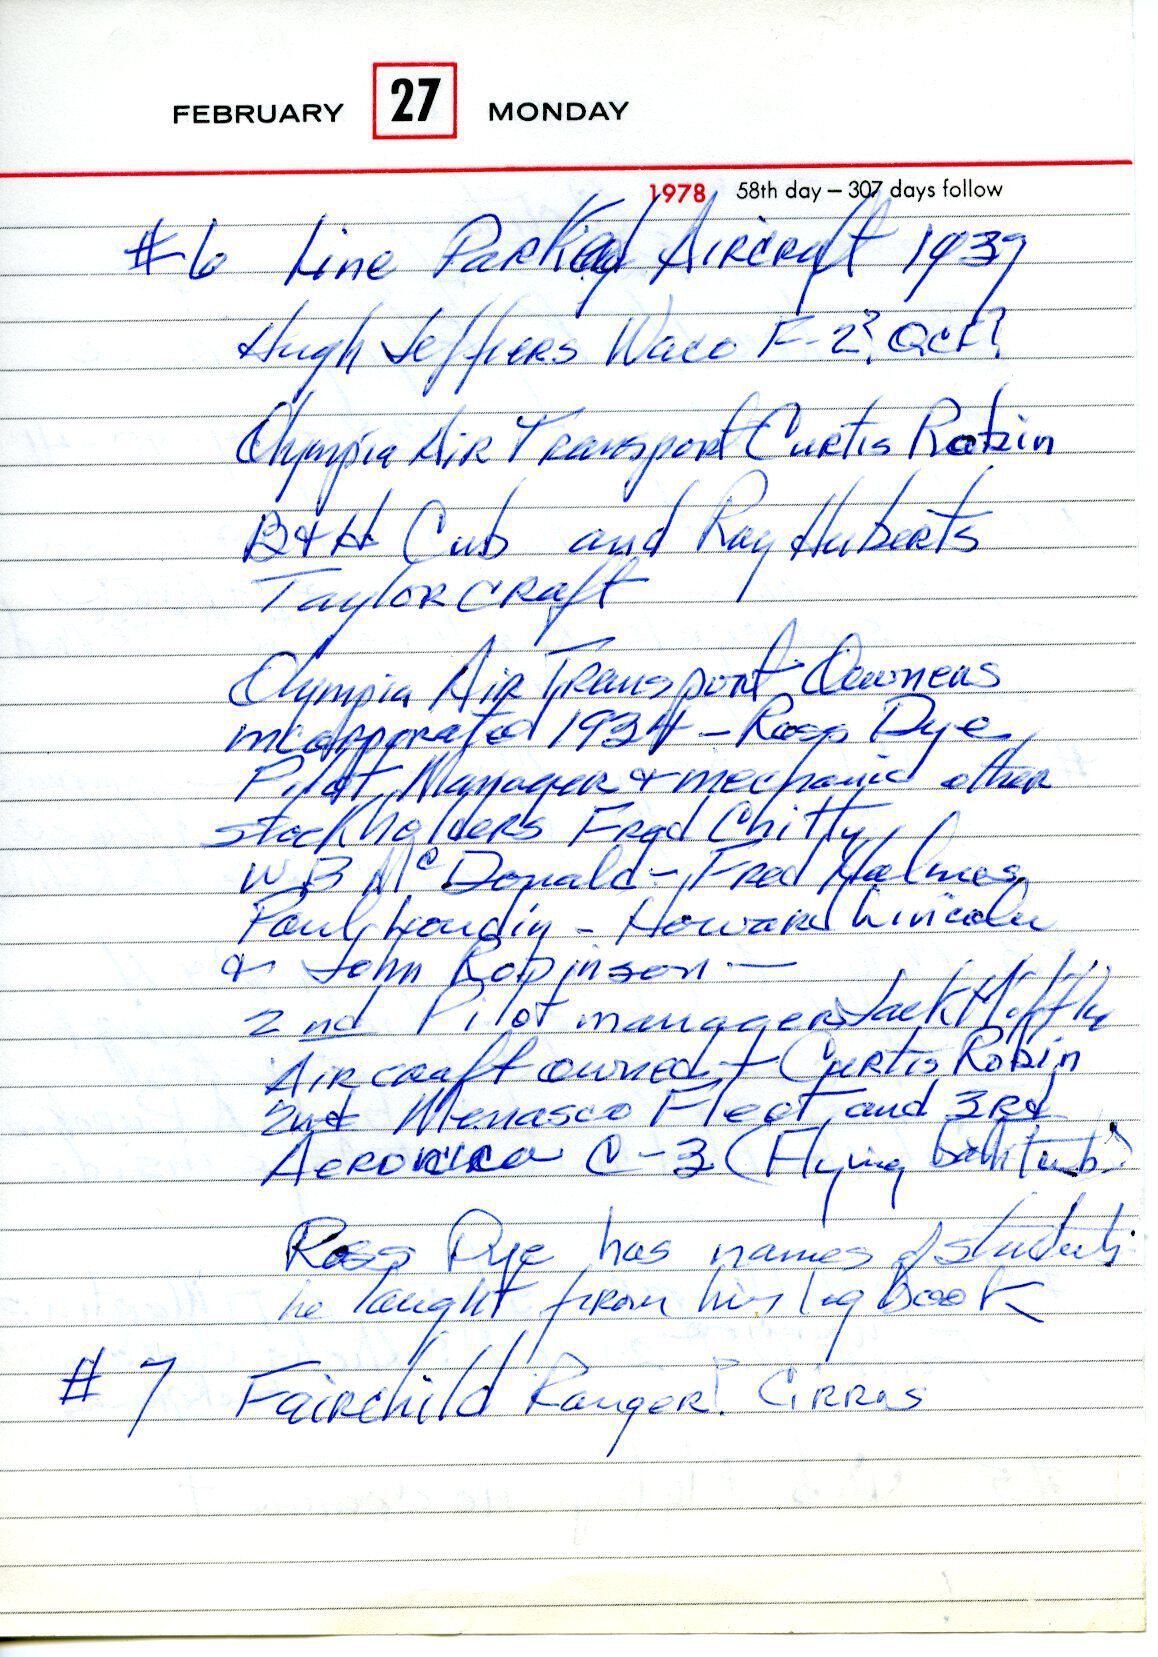 FEBRUARY 27 MONDAY
1978 58th day — 307 days follow
#6 Line Parked Aircraft 1939
Hugh Jeffers Waco F-2? QCF?
Olympia Air Transport Curtis Robin
B & H Cub and Ray Huberts
Taylor craft
Olympia Air Transport Owners
incorporated 1934 - Ross Dye
Pilot, Manager & mechanic other
stockholders Fred Chitty
W B McDonald - Fred Holmes
Paul - Howard Lincoln
& John Robinson —
2nd Pilot manager Jack
Aircraft owned - Curtis Robin
2nd Menasco Fleet, and 3rd
Aeronca C-3 (Flying bathtub)
Ross Dye has names of students
he taught from his log book
#7 Fairchild Ranger? Cirrus